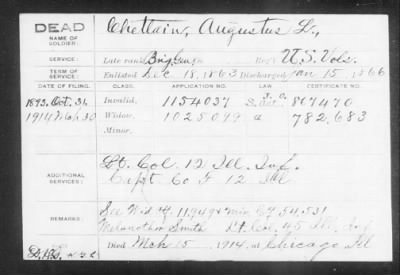 DEAD Chetlain, Augustus L.,
NAME OF SOLDIER:
SERVICE: Late rank, Brig. Gen., Reg't U.S. Vols.
TERM OF SERVICE: Enlisted Dec 18, 1863 Discharged Jan 15, 1866
DATE OF FILING. CLASS. APPLICATION NO. LAW. CERTIFICATE NO.
1893, Oct. 31. Invalid, 1154037 817470
1914 30 Widow, 1025099 a 782,683
Minor,
ADDITIONAL SERVICES: Lt. Col. 12 Ill. Inf.
Capt. Co F 12 Ill
REMARKS: See Wid. 11949 & min CH 54,531
Smith Lt. Col. 45 Ill. Inf.
Died Mch 15, 1914, at Chicago Ill